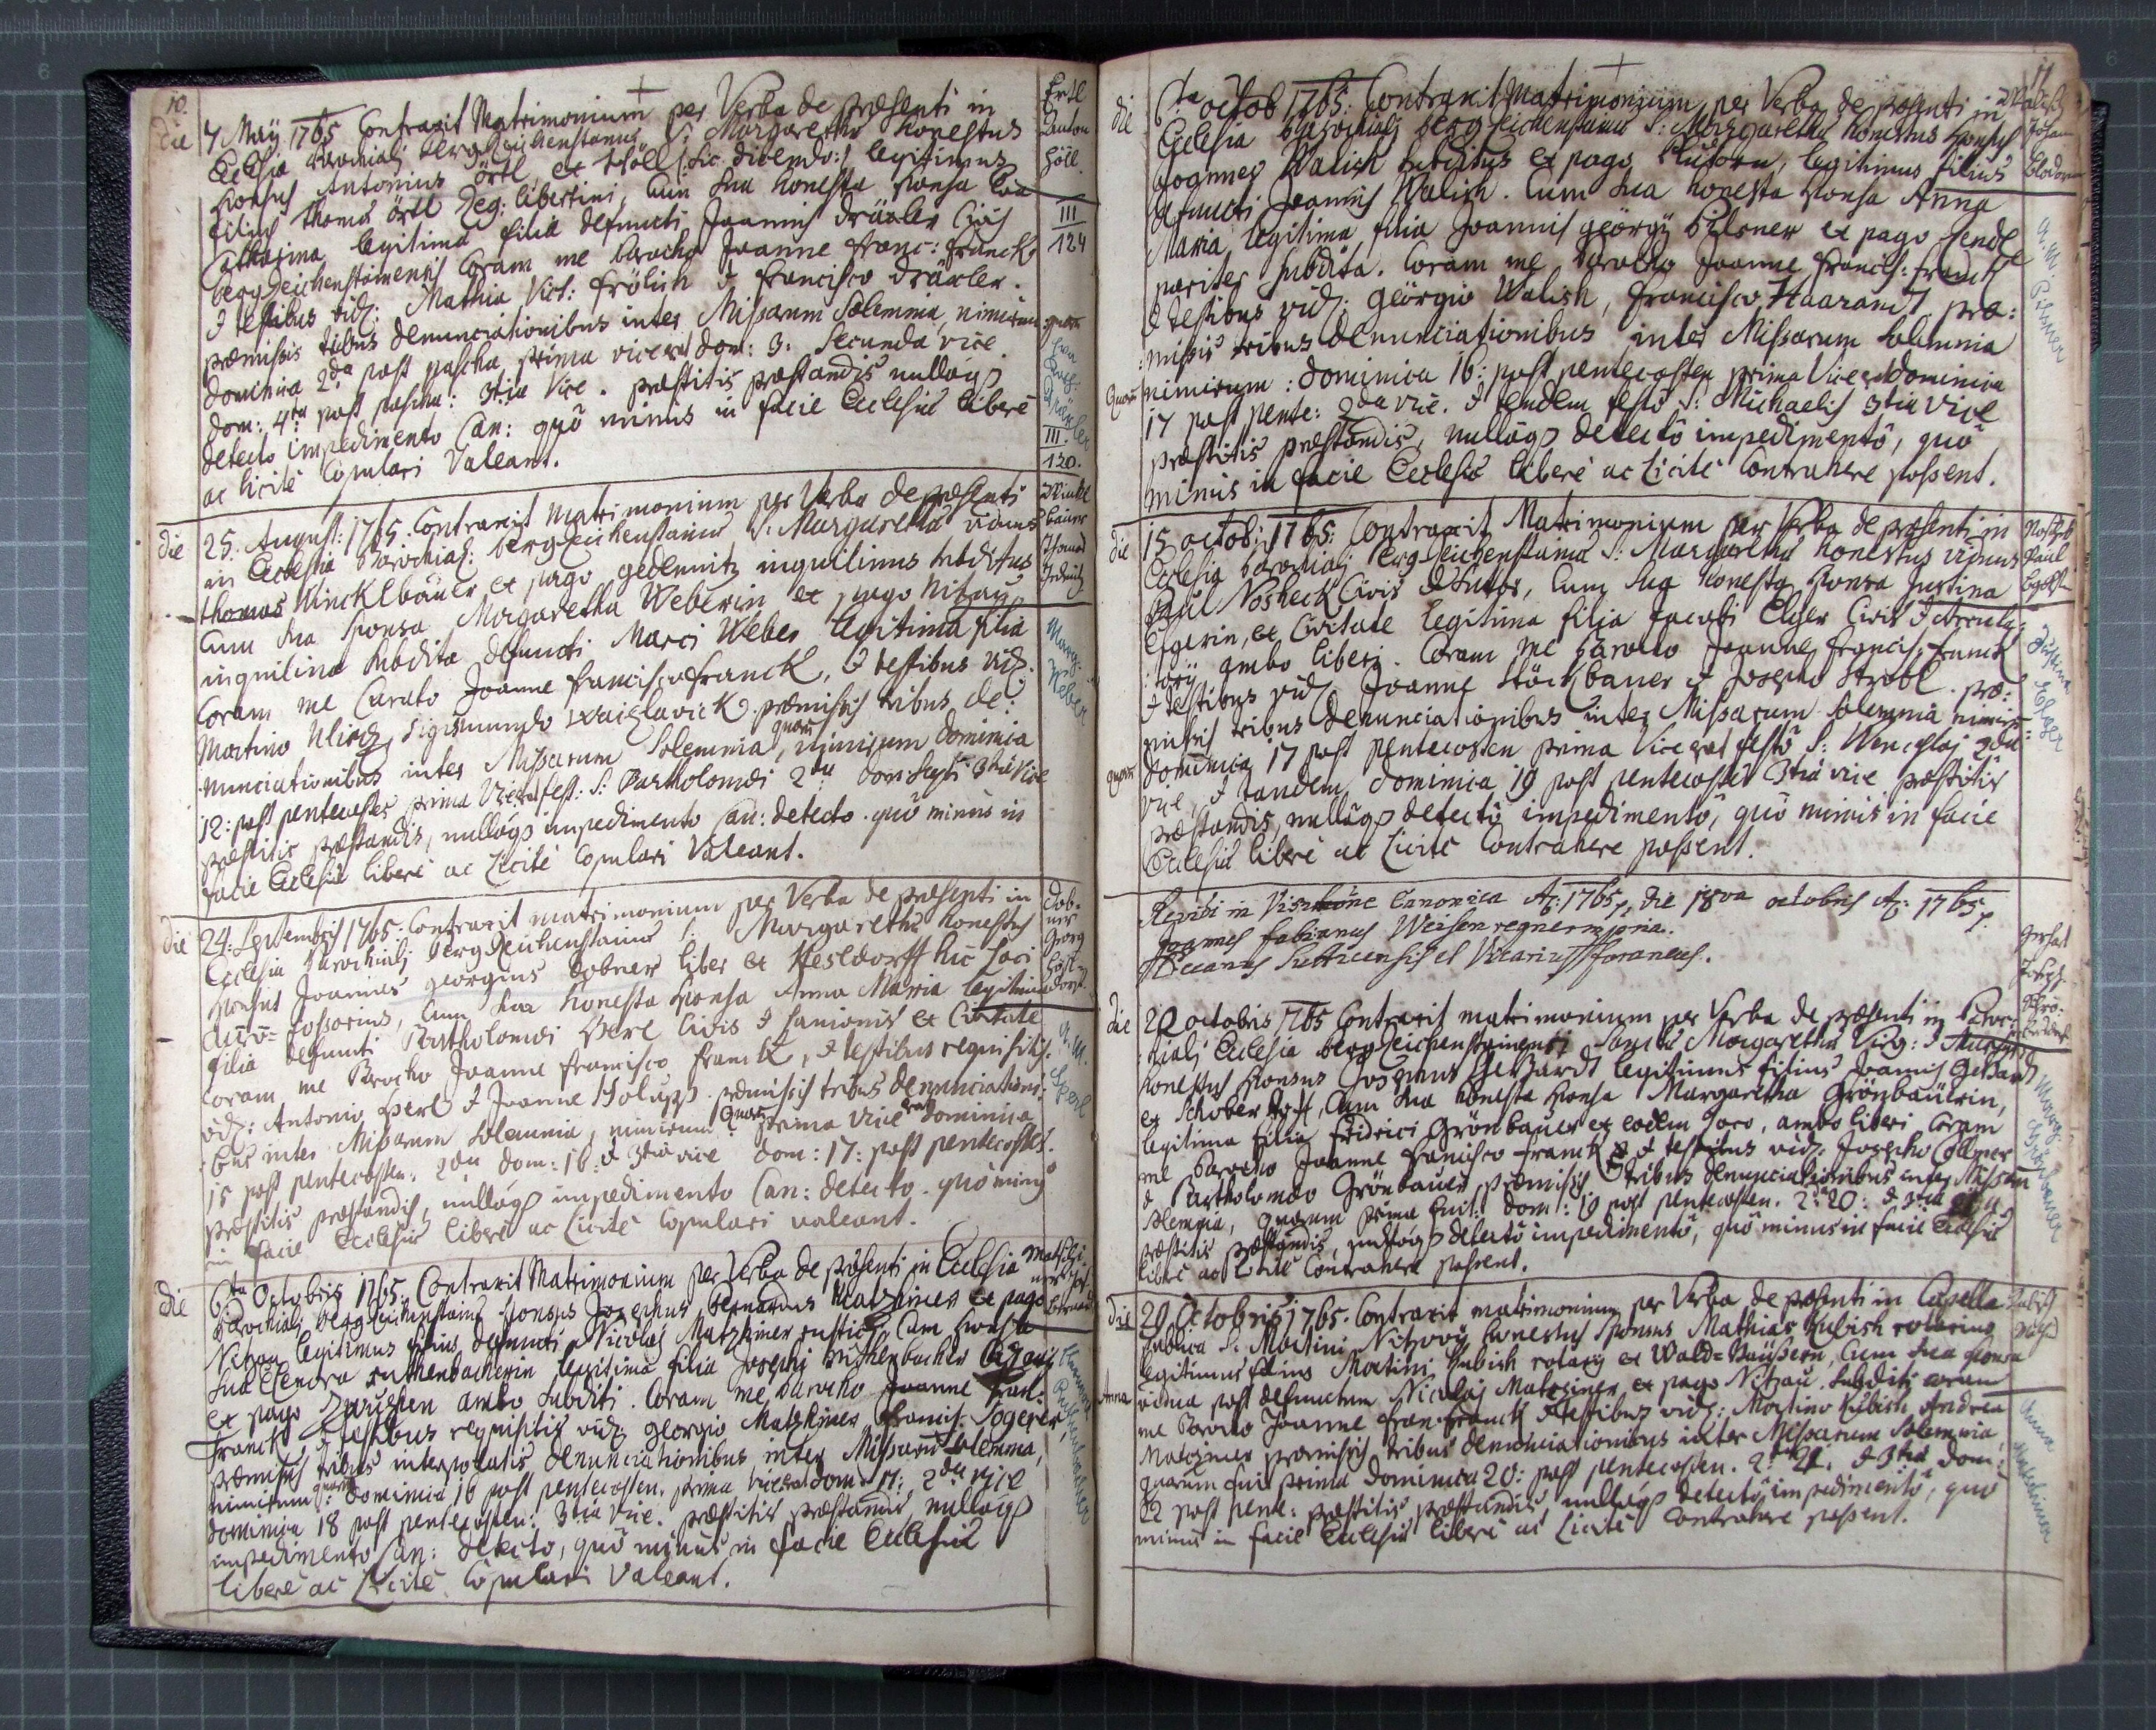 10.
die 7 Maÿ 1765 Contraxit Matrimonium per Verba de præsenti in
Eclesia Parochialj bergReichenstainensi S: Margarethæ Honestus
sponsus Antonius örtl ex Höll /:sic dicendo:/ legitimus
filius Thomæ örtl Reg: libertini, Cum sua honesta sponsa
Catharina legitima filia defuncti Joannis dräxler Civis
bergReichenstainensis Coram me Parocho Joanne franc: franck
& testibus vidz: Mathia Vict: frölich & francisco draxler.
præmissis tribus denunciationibus inter Missarum Solemnia, nimirum quarum
Dominica 2da post pascha, prima vice erat dom: 3. Secunda vice
dom: 4ta post pascha: 3tia Vice. præstitis præstandis nullóqz
detecto impedimento Can: quô minus in facie Ecclesiæ liberè
ac licitè Copulari Valeant.
Ertl
Anton
Höll.
III
124
Dräxler
III.
120.
die 25. August: 1765. Contraxit Matrimonium per Verba de præsenti
in Ecclesia Parochial: bergReichenstainensi S: Margarethæ viduus
Thomas Wincklbäuer ex pago gedemitz inquilinus subditus
Cum sua sponsa Margaretha Weberin ex pago Nitzau
inquilina subdita defuncti Marci Weber legitima filia
Coram me Curato Joanne francisco franck, & testibus vidz.
Martino Ulrich, Sigismundo Waiglavick præmissis tribus de:
nunciationibus inter Missarum Solemnia, quarum nimirum Dominica
12: post pentecosten prima Vice erat fest: S: Bartholomæi 2da dom sequ: 3tia Vice
præstitis præstandis, nullóqz impedimento Can: detecto. quô minus in
facie Ecclesiæ liberè ac Licitè Copulari Valeant.
Winkl
bauer
Thomas
Marg:
Weber
die 24: Septembris 1765. Contraxit matrimonium per Verba de præsenti in
Ecclesia Parochialj bergReichenstainensi S: Margarethæ honestus
sponsus Joannes georgius Dobner liber ex Hesldorff hic loci
auri-fossorius, Cum sua honesta sponsa Anna Maria legitima
filia defuncti Bartholomæi Sperl Civis & Lanionis ex Civitate
Coram me Parocho Joanne francisco franck, & testibus requisitis
vidz: Antonio Sperl & Joanne Holupp præmissis tribus denunciationi:
bus inter Missarum Solemnia, nimirum: quarum prima vice erat dominica
15 post pentecosten: 2da dom: 16: & 3tia vice dom: 17: post pentecosten.
præstitis præstandis, nullóqz impedimento Can: detecto. quô minus
in facie Ecclesiæ liberè ac Licitè Copulari valeant.
Dob-
ner
Georg
Hösl-
dorf
A. M.
Sperl
die 6ta Octobris 1765. Contraxit Matrimonium per Verba de præsenti in Ecclesia
Parochialj bergReichenstainensi sponsus Josephus Bernardus Matzhiner ex pago
Nitzau legitimus filius defuncti Nicolaj Matzhiner rustici, Cum sponsa
sua Elenora ruthenbacherin legitima filia Josephi ruthenbacher
ex pago ambo subditi. Coram me Parocho Joanne franc:
franck & testibus requisitis vidz georgio Matzhiner, francis: Togerer,
præmissis tribus interpolatis denunciationibus inter Missarum Solemnia,
nimirum quarum: Dominica 16 post pentecosten. prima vice erat dom: 17: 2da vice
dominica 18 post pentecosten: 3tia vice. præstitis præstandis nullóqz
impedimento Can: detecto, quô minus in facie Ecclesiæ
liberè ac Licitè Copulari Valeant.
11
die 6ta octob 1765: Contraxit Matrimonium per Verba de præsenti in
Eclesia Parochialj bergReichenstainensi S: Margarethæ honestus sponsus
Joannes Walish subditus ex pago, legitimus filius
defuncti Joannis Walish. Cum sua honesta sponsa Anna
Maria, legitima filia Joannis geörgÿ Pilsner ex pago
pariter subdita. Coram me Parocho Joanne francis: franck
& testibus vidz: geörgio Walish, francisco Haarand præ:
missis tribus denunciationibus inter Missarum Solemnia
quarum nimirum: dominica 16: post pentecosten prima Vice erat dominica
17 post pente: 2da vice. & tandem festo S: Michaelis 3tia vice
præstitis præstandis, nullóqz detectô impedimentô, quô
minus in facie Ecclesiæ liberè ac Licitè Contrahere possent.
Walish
Johann
A. M.
Pilsner
die 15 octob: 1765: Contraxit Matrimonium per Verba de præsenti in
Ecclesia Parochialj bergReichenstainensi S: Margarethæ honestus viduus
Paul Nosheck Civis & Sutor, Cum sua honesta sponsa Justina
Elgerin, ex Civitate legitima filia Jacobi Elger Civis &
ambo liberi. Coram me Parocho Joanne francis: franck
& testibus vidz Joanne Stöckbauer & Josepho Strobl. præ:
missis tribus denunciationibus inter Missarum Solemnia nimirum:
quarum dominica 17 post pentecosten prima Vice erat festô S: Wenceslaj 2da
vice, & tandem dominica 19 post pentecosten 3tia vice præstitis
præstandis, nullóqz detectô impedimentô, quô minus in facie
Ecclesiæ liberè ac Licitè Contrahere possent.
Paul
Justina
Elger
Revidi in Visitatione Canonica Aõ: 1765, die 18va octobris Aõ: 1765.
Joannes Fabianus Weisenregner mpria.
Decanus Sutticensis et Vicarius foraneus.
die 20 octobris 1765 Contraxit matrimonium per Verba de præsenti in Paro:
chialj Ecclesia bergReichenstainensi Sanctæ Margarethæ Virg: & Martyr:
honestus sponsus Josephus Gerhardt legitimus filius Joannis Gerhardt
ex Schober, Cum sua honesta sponsa Margaretha Grönbäurin,
legitima filia fridrici Grönbauer ex eodem Loco, ambo liberi, Coram
me Parocho Joanne francisco franck & testibus vidz. Josepho Collmer
& Bartholomæo Grönbauer, præmissis tribus denunciationibus inter Missarum
Solemnia, quarum prima fuit: dom: 19 post pentecosten. 2. 20: & 3tia
præstitis præstandis, nullóqz detectô impedimentô, quô minus in facie Ecclesiæ
liberè ac Licitè Contrahere possent.
Joseph
Marg:
Grönbauer
die 29 Octobris 1765. Contraxit matrimonium per Verba de præsenti in Capella
publica S: Martini Nitzovÿ honestus sponsus Mathias Kubish rotarius
legitimus filius Martini Kubish rotarÿ ex Wald-Haüsern, Cum sua sponsa
Anna vidua post defunctum Nicolaj Matzhiner ex pago Nitzau. subditi coram
me Parocho Joanne fran: franck & testibus vidz: Martino Kubish, Andrea
Matzhiner præmissis tribus denunciationibus inter Missarum Solemnia,
quarum fuit prima dominica 20: post pentecosten. 2: 21. & 3tia dom:
22 post pent: præstitis præstandis nullóqz detectô impedimentô, quô
minus in facie Ecclesiæ liberè ac Licitè Contrahere possent.
Anna